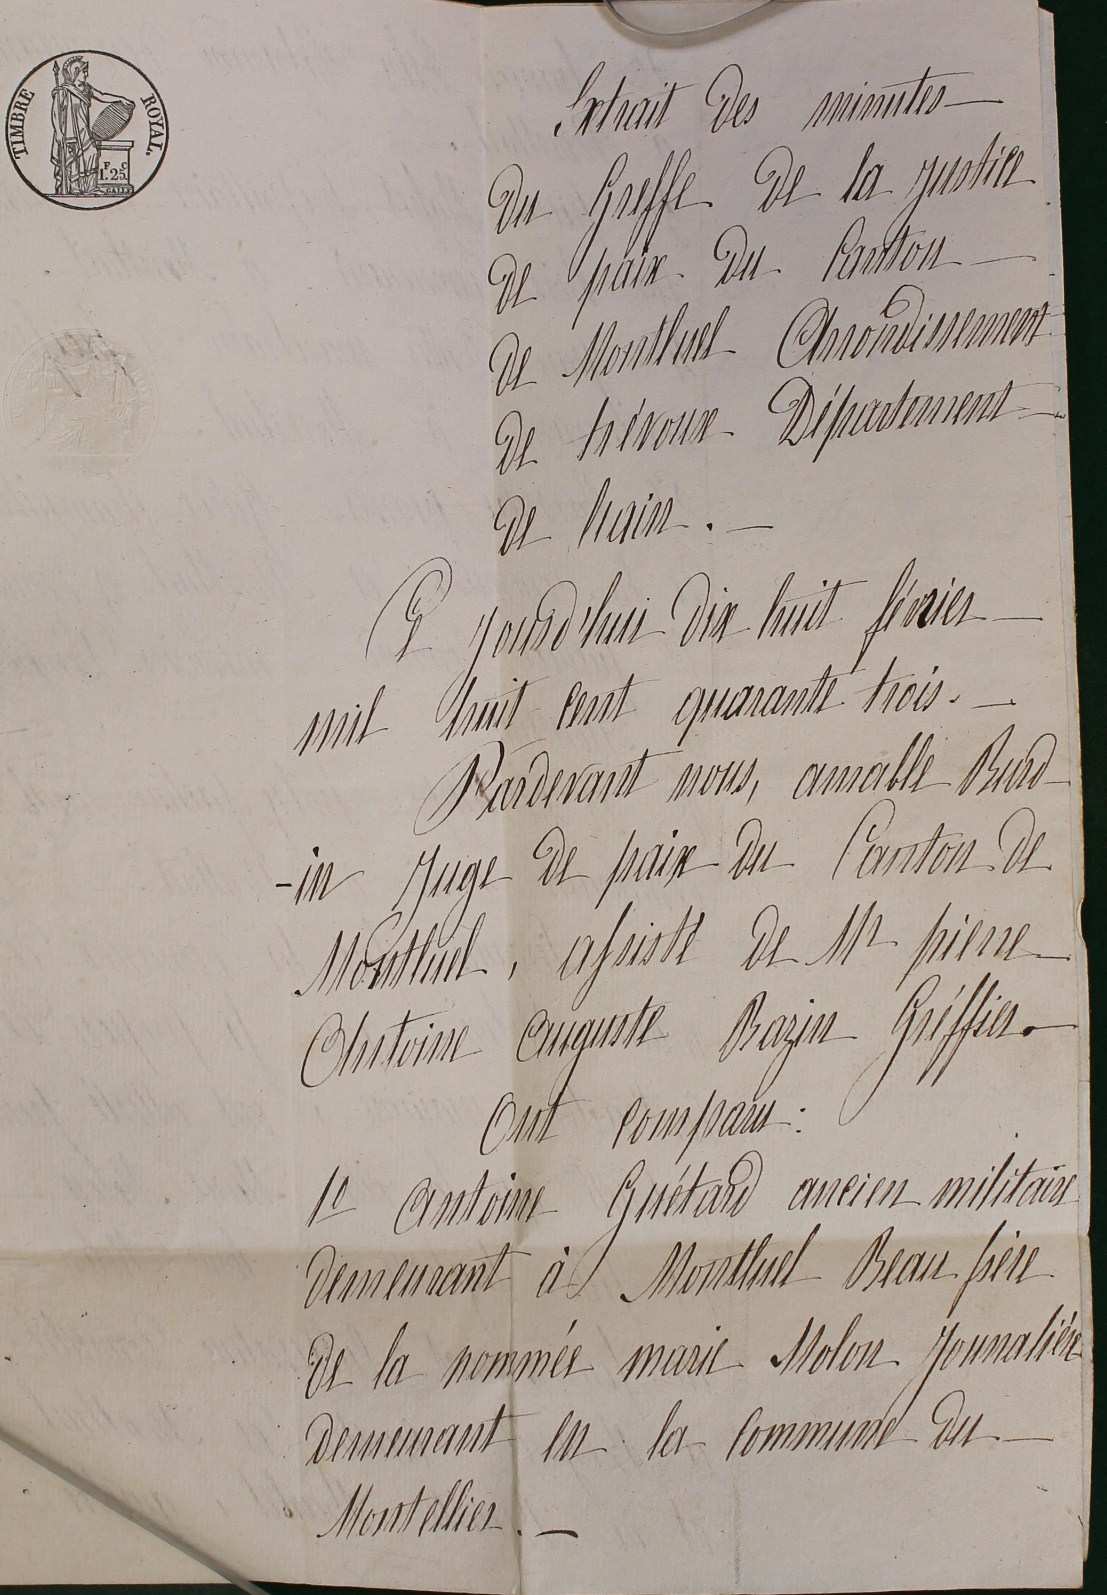 TIMBRE ROYAL.
F. C.
1. 25.
Extrait des minutes
du Greffe de la justice
de paix du Canton
de Montluel Arrondissement
de trévoux Département
de l'ain.
Ce jourd'hui dix huit février
mil huit cent quarante trois.
Pardevant nous, amable Burd
-in Juge de paix du Canton de
Montluel, assisté de Mr pierre
Antoine Auguste Bazin Gréffier.
Ont comparu :
1o Antoine Guétard ancien militaire
demeurant à Montluel Beau frère
de la nommée marie Molon Journalière
demeurant en la commune du
Montellier.